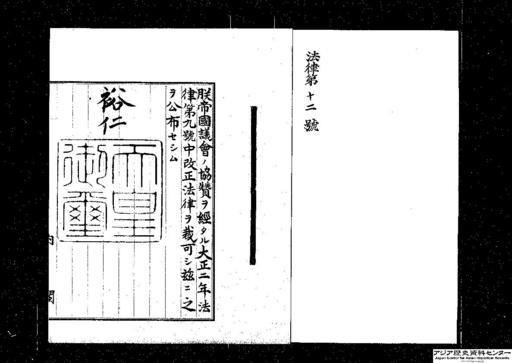 法律第十二號
朕帝國議會ノ協贊ヲ經タル大正二年法
律第九號中改正法律ヲ裁可シ茲ニ之
ヲ公布セシム
裕仁
天皇
御璽
内閣
アジア歴史資料センター
Japan Center for Asian Historical Records